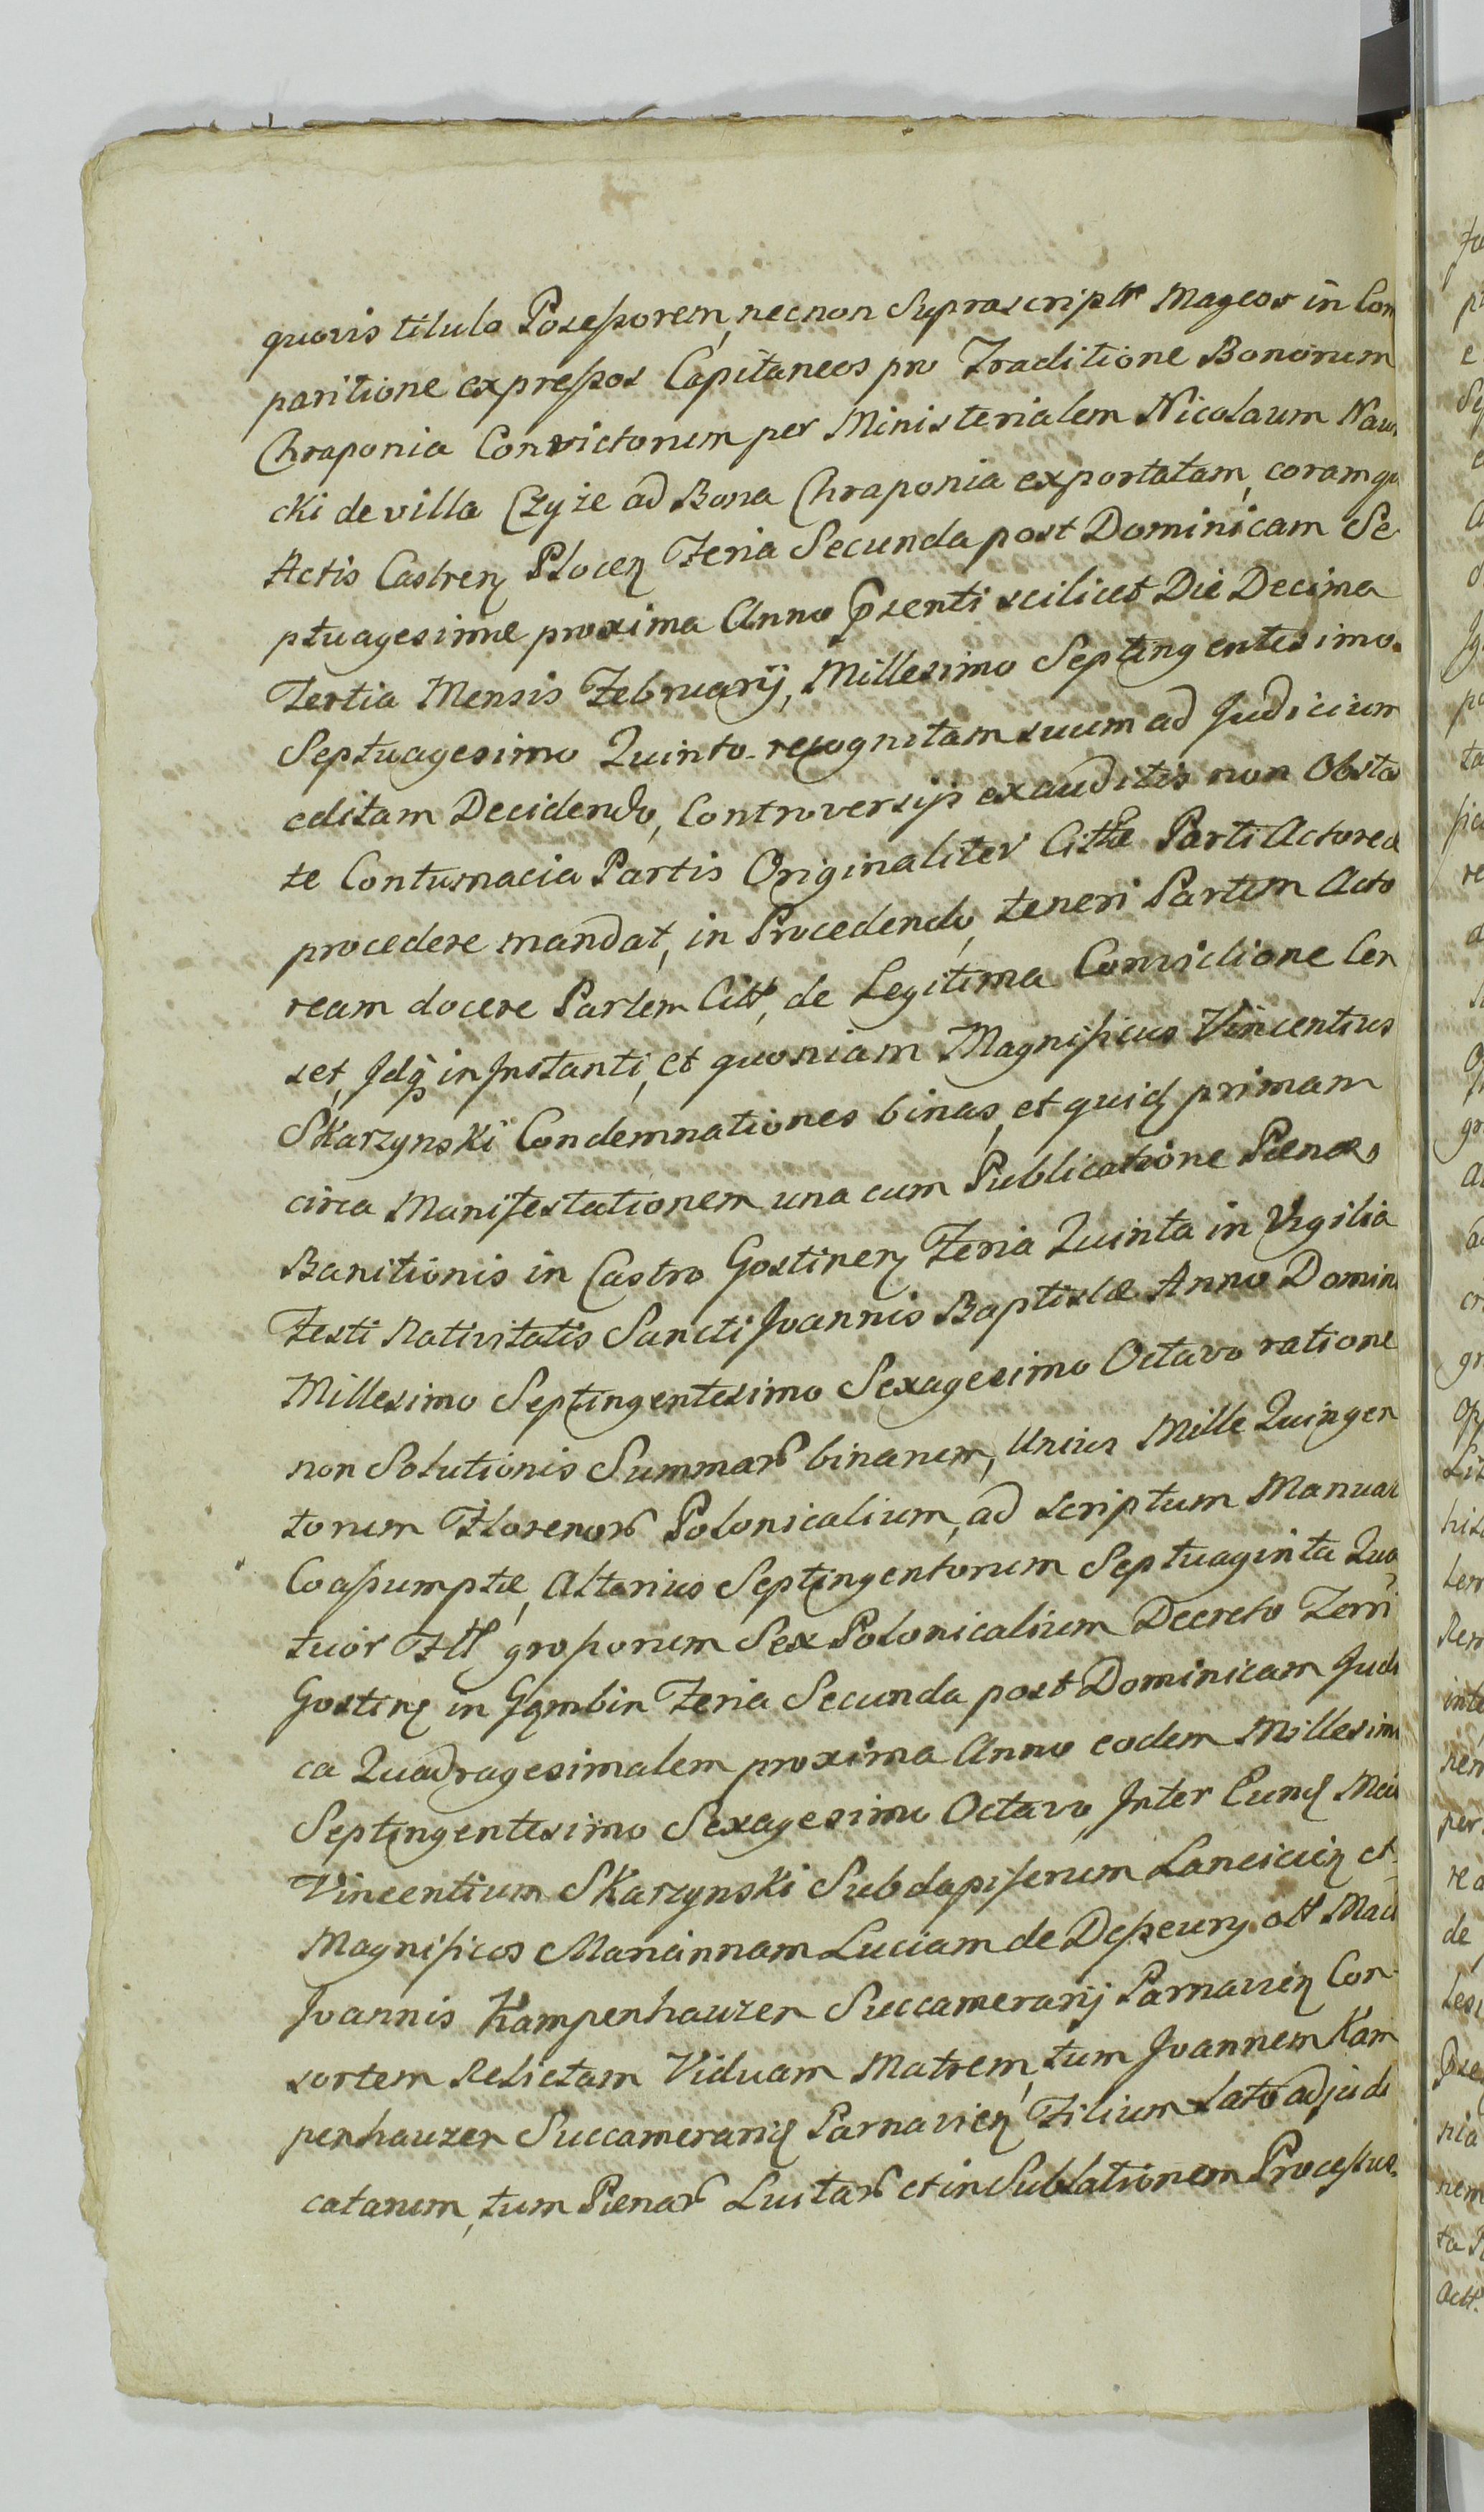 quovis titulo Possessorem, necnon Suprascriptt Mageos in Com
paritione expressos Capitaneos pro Traditione Bonorum
Chraponia Convictorum per Ministerialem Nicolaum Naw
cki de villa Czyże ad Bona Chraponia exportatam, coram qu
Actis Castren Plocen Feria Secunda post Dominicam Se
ptuagesimæ proxima Anno Psenti scilicet Die Decima
Tertia Mensis Februarij, Millesimo Septingentesimo
Septuagesimo Quinto recognitam suum ad Judicium
editam Decidendo, Controversijs exauditis non Obstan
te Contumacia Partis Originaliter Cittæ Parti Actoreæ
procedere mandat, in Procedendo, teneri Partem Acto
ream docere Partem Citt, de Legitima Convictione Cen
set, Idq in Instanti, et quoniam Magnificus Vincentius
Skarzynski Condemnationes binas, et quid primam
circa Manifestationem una cum Publicatione Pænæ
Banitionis in Castro Gostinen Feria Quinta in Vigilia
Festi Nativitatis Sancti Joannis Baptistæ Anno Domini
Millesimo Septingentesimo Sexagesimo Octavo ratione
non Solutionis Summar binarum, Unius Mille Quingen
torum Florenor Polonicalium, ad scriptum Manuale
Coassumptæ, Alterius Septingentorum Septuaginta Qua
tuor Fll grossorum Sex Polonicalium Decreto Terri
Gostin in Gąmbin Feria Secunda post Dominicam Judi
ca Quadragesimalem proxima Anno eodem Millesimo
Septingentesimo Sexagesimo Octavo, Inter Eund
Vincentium Skarzynski Subdapiferum Lancicien et
Magnificos Mariannam Luciam de olt
Joannis Kampenhauzen Succamerarij Parnavien Con
sortem Relictam Viduam Matrem, tum Joannem Kam
penhauzen Succamerarid Parnavien Filium lato adjudi
catarum, tum Pænar Luitar et in Sublationem Processus